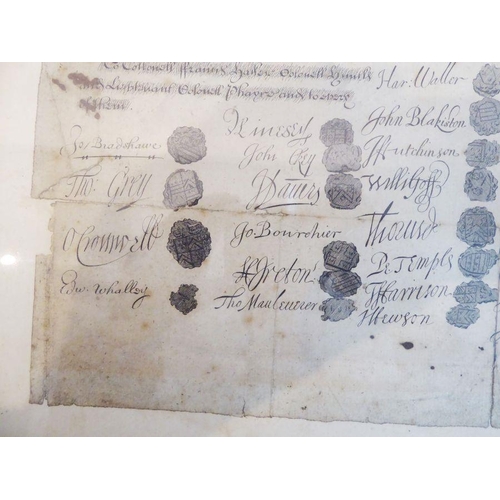 To Collonell ffrancis Hacker Colonell Huncks
and Lieutenant Colonell Phayre and to every
of them.
Jo Bradshawe
Tho Grey
O Cromwell
Edw Whalley
M Livesey
John Okey
J Dauers
Jo Bourchier
H Ireton
Tho Mauleuerer
Har: Waller
John Blakiston
J Hutchinson
Willi Goff
Tho Pride
Pe Temple
T Harrison
J Hewson